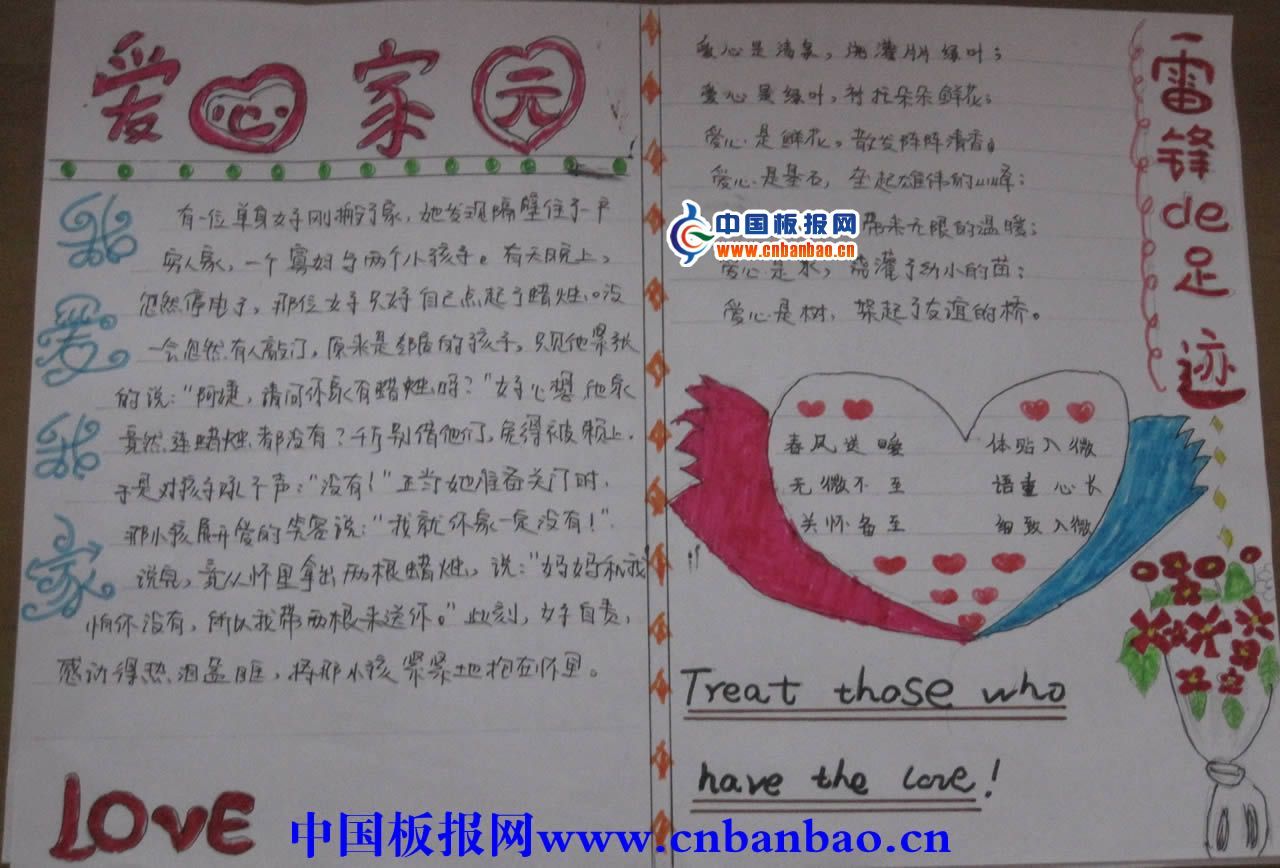 爱心家元
我爱我家
有一位单身女子刚搬了家，她发现隔壁住了一户
穷人家，一个寡妇与两个小孩子。有天晚上，
忽然停电了，那位女子只好自己点起了蜡烛。没
一会忽然有人敲门，原来是邻居的孩子，只见他紧张
的说：“阿婕，请问你家有蜡烛吗？”女子心想，他家
竟然连蜡烛都没有？千万别借他们，免得被赖上，
于是对孩子吼了声：“没有！”正当她准备关门时，
那小孩展开爱的笑容说：“我就你家一定没有！”
说完，竟从怀里拿出两根蜡烛，说：“妈妈和我
怕你没有，所以我带两根来送你。”此刻，女子自责，
感动得热泪盈眶，将那小孩紧紧地抱在怀里。
LOVE
爱心是清泉，浇灌片片绿叶；
爱心是绿叶，衬托朵朵鲜花；
爱心是鲜花，散发阵阵清香。
爱心是基石，垒起雄伟的山峰；
带来无限的温暖；
爱心是水，灌了幼小的苗；
爱心是树，架起了友谊的桥。
中国板报网
www.cnbanbao.cn
雷锋de足迹
春风送暖 体贴入微
无微不至 语重心长
关怀备至 细致入微
Treat those who
have the love!
中国板报网www.cnbanbao.cn